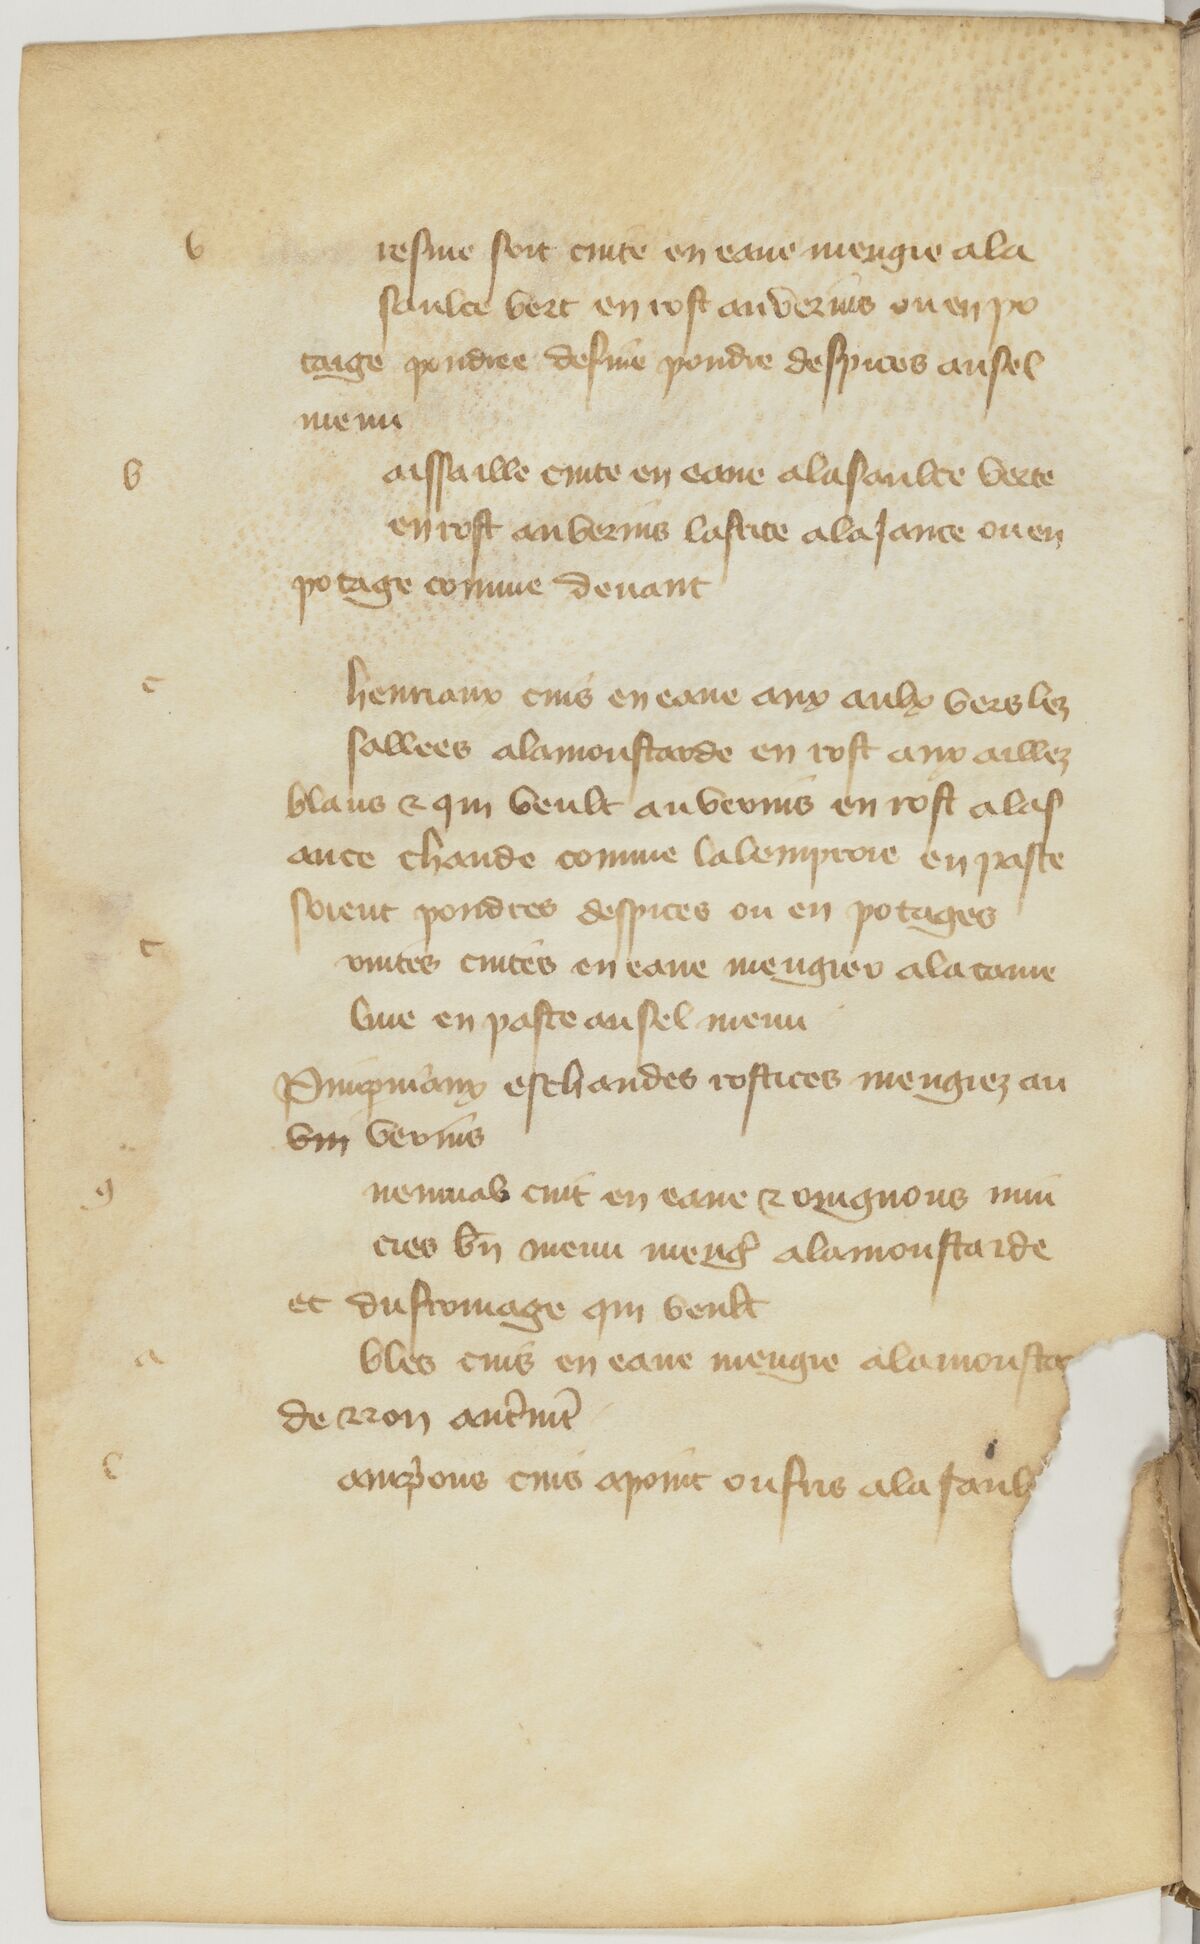 b resme soit cuite en eaue mengie a la
saulce vert en rost au verius ou en po
taige pondree desme poudre despices au sel
menu
b aissaille cuite en eaue a la saulce verte
en rost au verius lascite a la Jance ou en
potage comme deuant
c heuriaux cuis en eaue aux aulx vers lez
sallees a la moustarde en rost aux aillez
blans & qui veult au verius en rost a la s
auce chaude comme la lemproie en paste
soient poudres despices ou en potages
t ruites cuites en eaue mengier a la came
line en paste au sel menu
Pimpmaux eschaudes rostices mengiez au
vin verius
g uenuab cuit en eaue & ongnons min
cies bn menu meng a la moustarde
et du fromage qui veult
a bles cuis en eaue mengie a la mousta
de & non autmt
c aurpons cuis a point ou fris a la saul